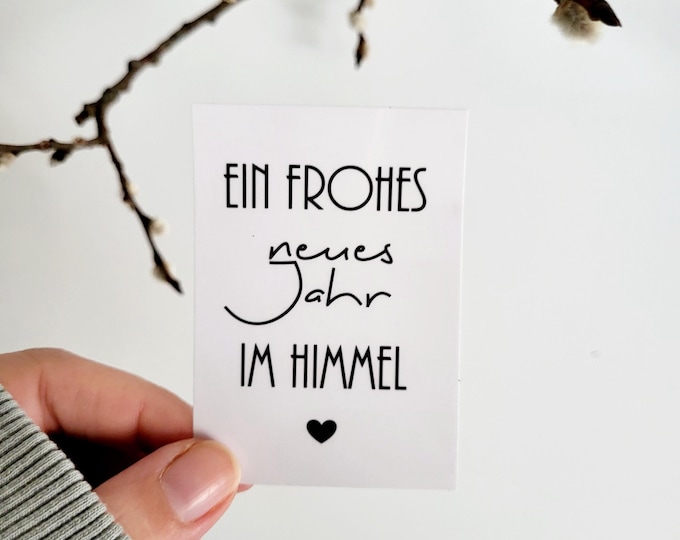 EIN FROHES
neues
Jahr
IM HIMMEL